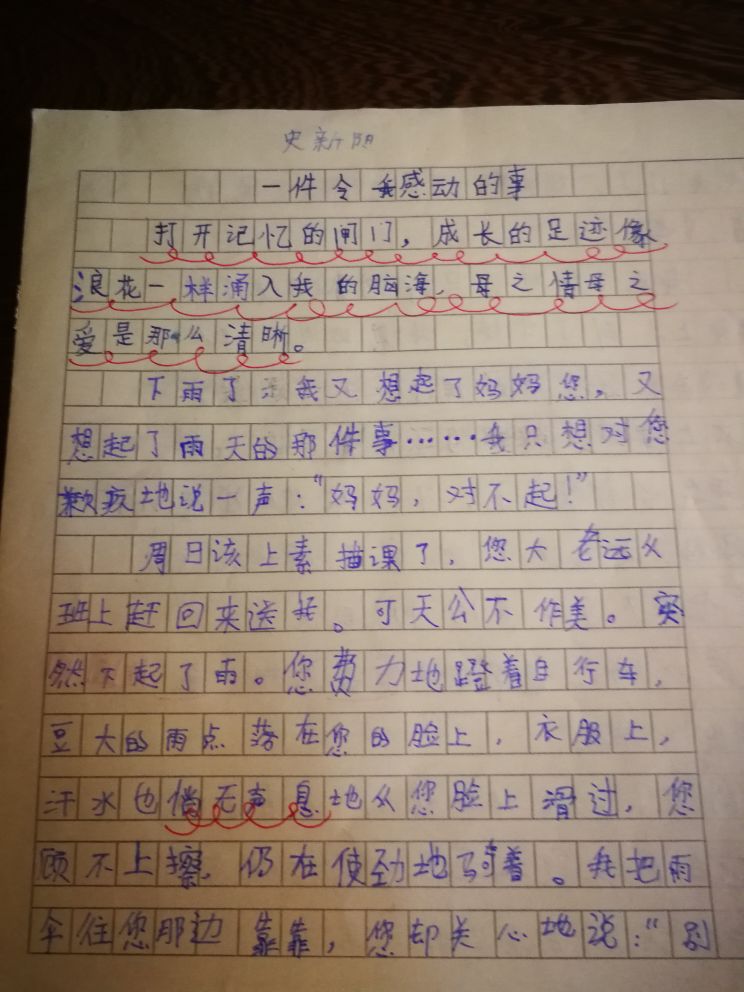 史新阴
一件令我感动的事
打开记忆的闸门，成长的足迹像
浪花一样涌入我的脑海，母之情母之
爱是那么清晰。
下雨了 我又想起了妈妈您，又
想起了雨天的那件事……我只想对您
歉疚地说一声：“妈妈，对不起！”
周日该上素描课了，您大老远从
班上赶回来送我。可天公不作美。突
然下起了雨。您费力地蹬着自行车，
豆大的雨点落在您的脸上，衣服上，
汗水也悄无声息地从您脸上滑过，您
顾不上擦，仍在使劲地骑着。我把雨
伞往您那边靠靠，您却关心地说：“别